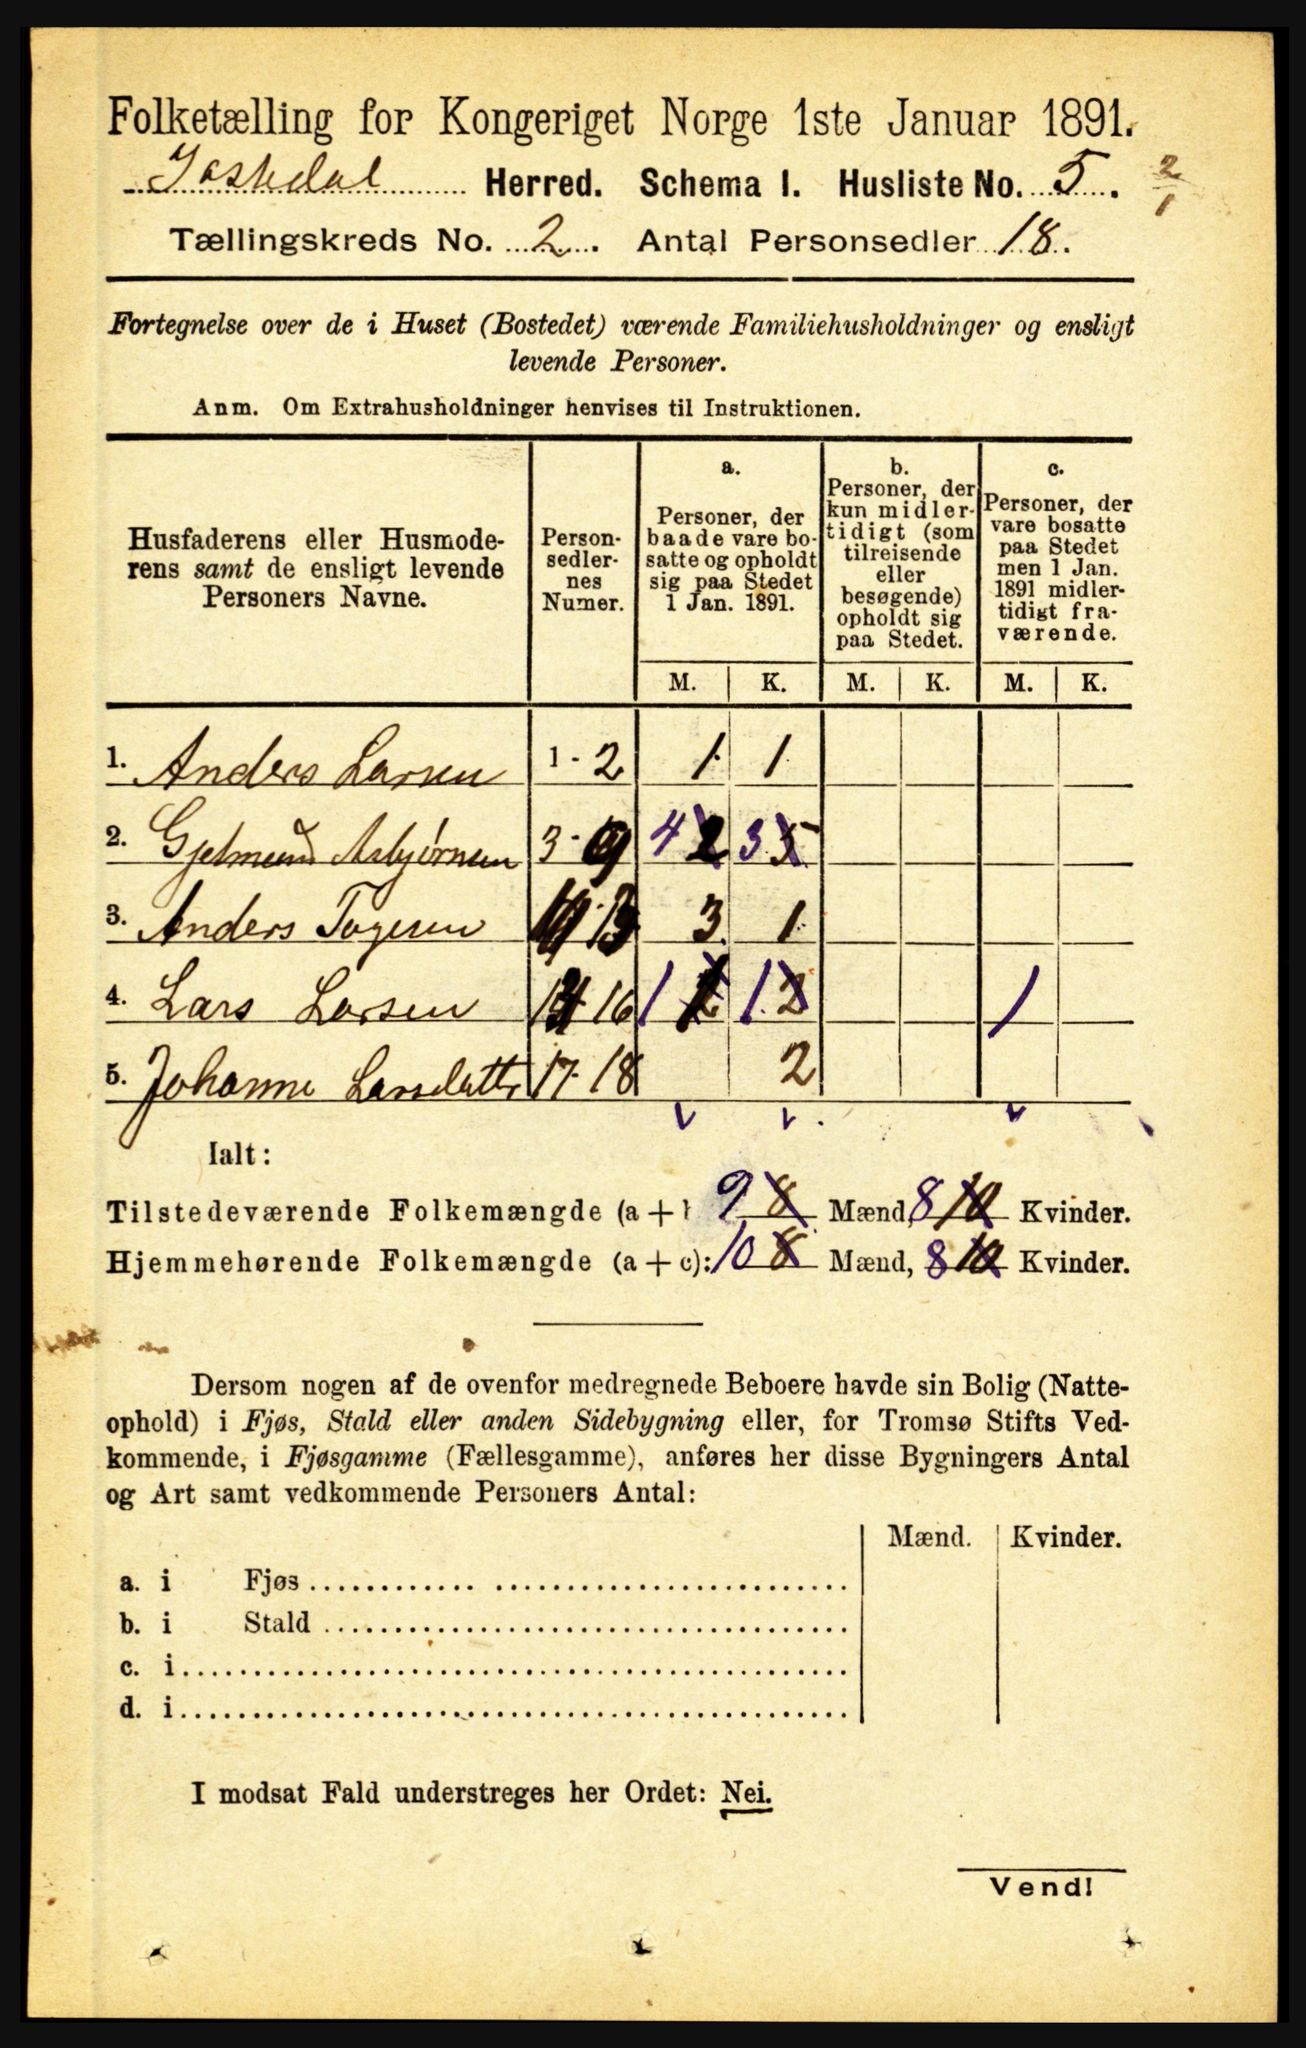 Folketælling for Kongeriget Norge 1ste Januar 1891.
Jostedal Herred. Schema I. Husliste No. 5. 2/1
Tællingskreds No. 2. Antal Personsedler 18.
Fortegnelse over de i Huset (Bostedet) værende Familiehusholdninger og ensligt
levende Personer.
Anm. Om Extrahusholdninger henvises til Instruktionen.
Husfaderens eller Husmode-
rens samt de ensligt levende
Personers Navne.
Person-
sedler-
nes
Numer.
a.
Personer, der
baade vare bo-
satte og opholdt
sig paa Stedet
1 Jan. 1891.
b.
Personer, der
kun midler-
tidigt (som
tilreisende
eller
besøgende)
opholdt sig
paa Stedet.
c.
Personer, der
vare bosatte
paa Stedet
men 1 Jan.
1891 midler-
tidigt fra-
værende.
M. K. M. K. M. K.
1. Anders Larsen 1 - 2 1 1
2. Gjelmund Asbjørnsen 3 - 9 4 2 3 5
3. Anders Togersen 13 3 1
4. Lars Larsen 16 1 2 1 2 1
5. Johanne Larsdatter 17 - 18 2
Ialt:
Tilstedeværende Folkemængde (a + 9 8 Mænd 8 10 Kvinder.
Hjemmehørende Folkemængde (a + c): 10 8 Mænd, 8 10 Kvinder.
Dersom nogen af de ovenfor medregnede Beboere havde sin Bolig (Natte-
ophold) i Fjøs, Stald eller anden Sidebygning eller, for Tromsø Stifts Ved-
kommende, i Fjøsgamme (Fællesgamme), anføres her disse Bygningers Antal
og Art samt vedkommende Personers Antal:
Mænd. Kvinder.
a. i Fjøs
b. i Stald
c. i
d. i
I modsat Fald understreges her Ordet: Nei.
Vend!